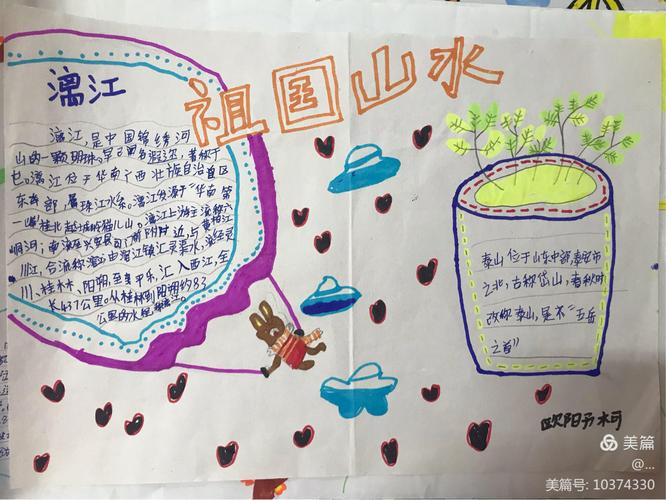 祖国山水
漓江
漓江是中国锦绣河
山的一颗明珠,早已闻名遐迩,著称于
世。漓江位于华南广西壮族自治区
东部,属珠江水系。漓江发源于"华南第
一峰"桂北越城岭猫儿山。漓江上游主流称六
峒河;南流至兴安县司门前附近,
川江,合流称溶江;由溶江镇汇灵渠水,流经灵
川、桂林、阳朔,至平乐,汇入西江,全
长437公里。从桂林到阳朔约83
公里的水程
泰山位于山东中部泰安市
之北,古称岱山,春秋时
改称泰山,是不"五岳
之首"
欧阳予
美篇
@...
美篇号: 10374330